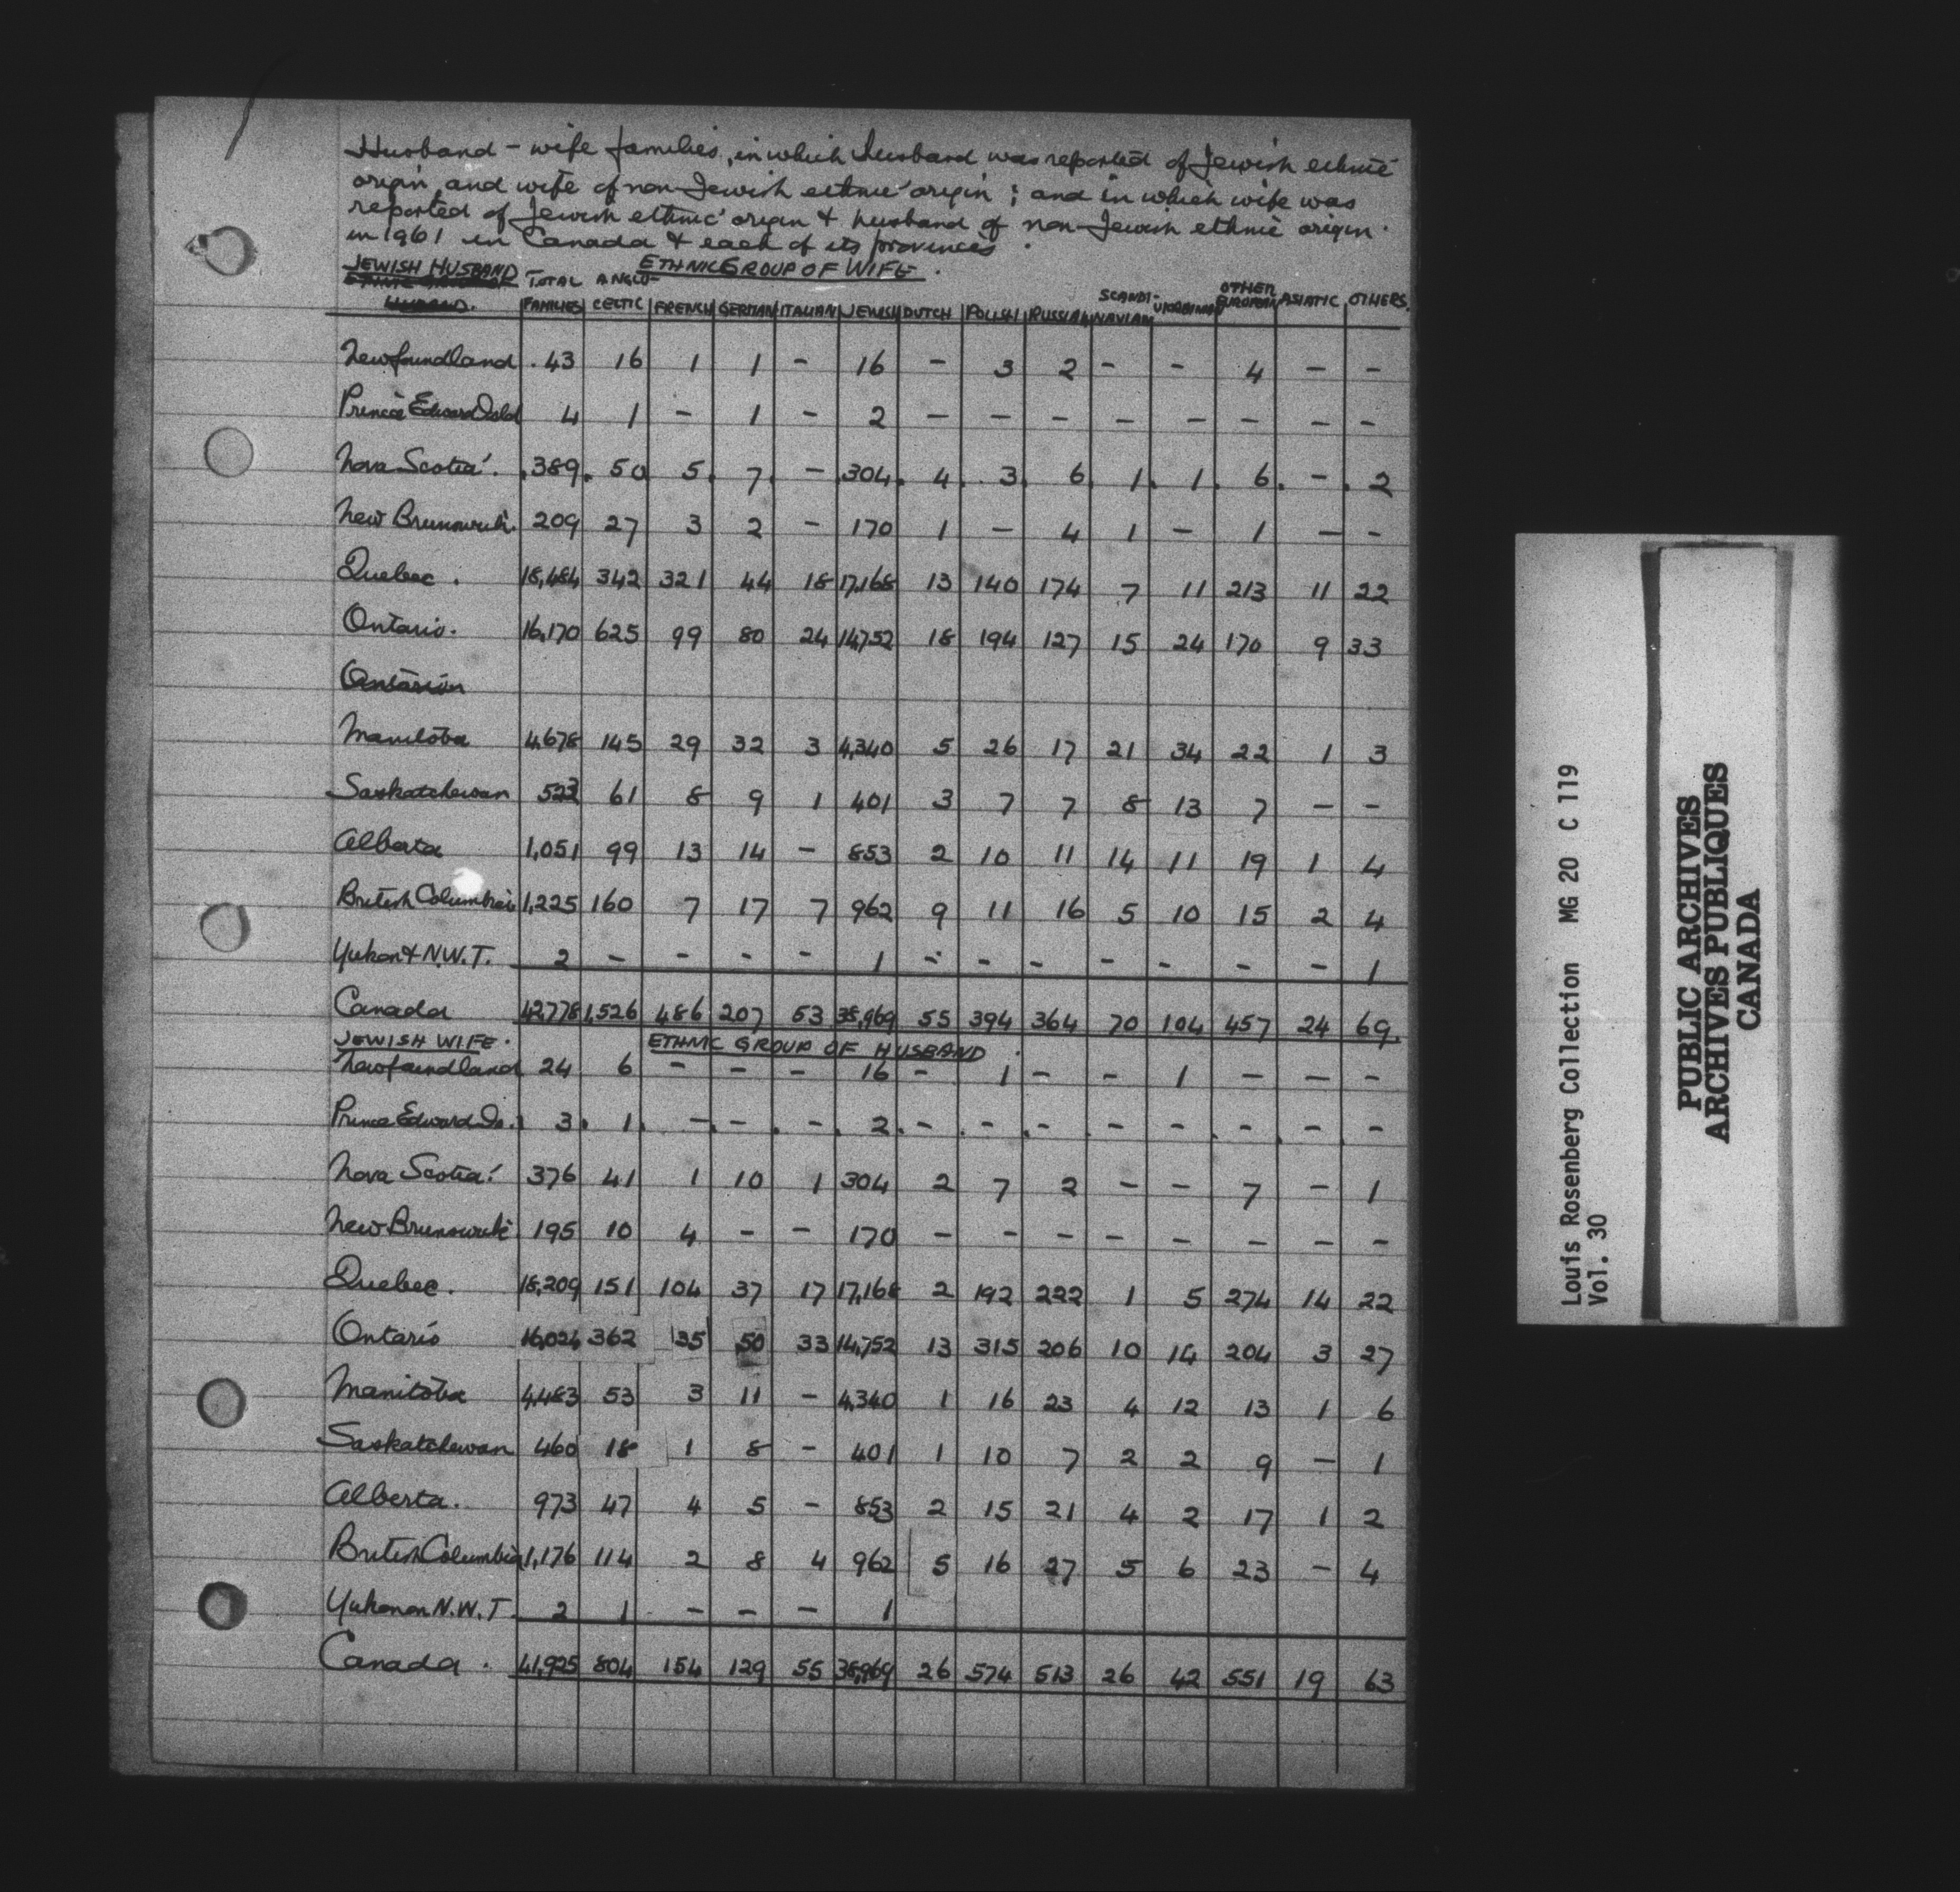 Husband - wife families, in which husband was reported of Jewish ethnic
origin, and wife of non-Jewish ethnic origin; and in which wife was
reported of Jewish ethnic origin & husband of non-Jewish ethnic origin.
in 1961 in Canada & each of its provinces.
JEWISH HUSBAND ETHNIC GROUP OF WIFE.
TOTAL FAMILIES ANGLO-CELTIC FRENCH GERMAN ITALIAN JEWISH DUTCH POLISH RUSSIAN SCANDI-NAVIAN UKRAINIAN OTHER EUROPEAN ASIATIC OTHERS.
Newfoundland 43 16 1 1 - 16 - 3 2 - - 4 - -
Prince Edward Isld 4 1 - 1 - 2 - - - - - - - -
Nova Scotia 389 50 5 7 - 304 4 3 6 1 1 6 - 2
New Brunswick 209 27 3 2 - 170 1 - 4 1 - 1 - -
Quebec. 18,484 342 321 44 18 17,168 13 140 174 7 11 213 11 22
Ontario. 16,170 625 99 80 24 14,752 18 194 127 15 24 170 9 33
Manitoba 4,678 145 29 32 3 4,340 5 26 17 21 34 22 1 3
Saskatchewan 523 61 8 9 1 401 3 7 7 8 13 7 - -
Alberta 1,051 99 13 14 - 853 2 10 11 14 11 19 1 4
British Columbia 1,225 160 7 17 7 962 9 11 16 5 10 15 2 4
Yukon & N.W.T. 2 - - - - 1 - - - - - - - 1
Canada 42,778 1,526 486 207 53 38,969 55 394 364 70 104 457 24 69.
JEWISH WIFE. ETHNIC GROUP OF HUSBAND.
Newfoundland 24 6 - - - 16 - 1 - - 1 - - -
Prince Edward Is. 3 1 - - - 2 - - - - - - - -
Nova Scotia 376 41 1 10 1 304 2 7 2 - - 7 - 1
New Brunswick 195 10 4 - - 170 - - - - - - - -
Quebec. 18,209 151 104 37 17 17,168 2 192 222 1 5 274 14 22
Ontario 16,024 362 35 50 33 14,752 13 315 206 10 14 204 3 27
Manitoba 4,483 53 3 11 - 4,340 1 16 23 4 12 13 1 6
Saskatchewan 460 18 1 8 - 401 1 10 7 2 2 9 - 1
Alberta. 973 47 4 5 - 853 2 15 21 4 2 17 1 2
British Columbia 1,176 114 2 8 4 962 5 16 27 5 6 23 - 4
Yukon N.W.T. 2 1 - - - 1
Canada. 41,925 804 154 129 55 38,969 26 574 513 26 42 551 19 63
Louis Rosenberg Collection MG 20 C 119
Vol. 30
PUBLIC ARCHIVES
ARCHIVES PUBLIQUES
CANADA